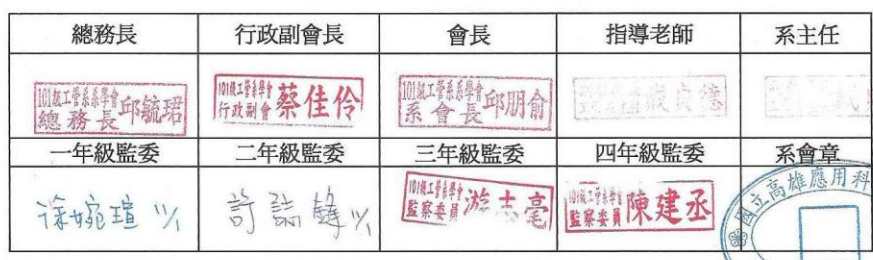 總務長 行政副會長 會長 指導老師 系主任
101級工管系系學會
總務長 邱毓珺
101級工管系學會
行政副會 蔡佳伶
101級工管系系學會
系會長 邱朋俞
一年級監委 二年級監委 三年級監委 四年級監委 系會章
徐婉瑄 11/1
許誌鋒 11/1
101級工管系學會
監察委員 游志毫
101級工管系學會
監察委員 陳建丞
國立高雄應用科